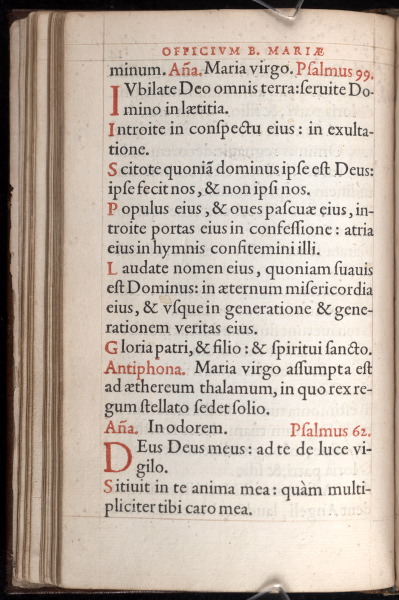 OFFICIVM B. MARIÆ
minum. Aña. Maria virgo. Psalmus 99.
IVbilate Deo omnis terra: seruite Do-
mino in lætitia.
Introite in conspectu eius: in exulta-
tione.
Scitote quoniã dominus ipse est Deus:
ipse fecit nos, & non ipsi nos.
Populus eius, & oues pascuæ eius, in-
troite portas eius in confessione: atria
eius in hymnis confitemini illi.
Laudate nomen eius, quoniam suauis
est Dominus: in æternum misericordia
eius, & vsque in generatione & gene-
rationem veritas eius.
Gloria patri, & filio: & spiritui sancto.
Antiphona. Maria virgo assumpta est
ad æthereum thalamum, in quo rex re-
gum stellato sedet solio.
Aña. In odorem. Psalmus 62.
DEus Deus meus: ad te de luce vi-
gilo.
Sitiuit in te anima mea: quàm multi-
pliciter tibi caro mea.